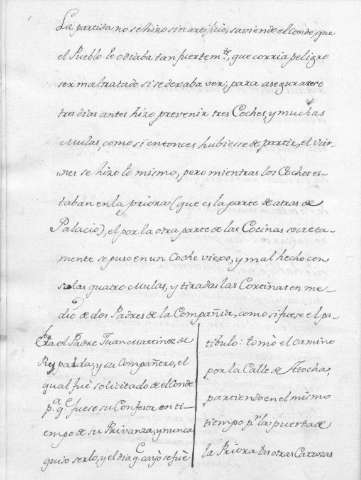 La partida no se hizo sin artificio, saviendo el Conde, que
el Pueblo lo odiaba tan fuertem.te, que corria peligro
ser maltratado si se dexaba ver; para asegurarse
tres dias antes hizo prevenir tres Coches, y muchas
Mulas, como si entonces hubiese de partir, el vier-
nes se hizo lo mismo, pero mientras los Coches es-
taban en la priora (que es la parte de atras de
Palacio), el por la otra parte de las Cocinas secreta-
mente se puso en un Coche viejo, y mal hecho con
solas quatro Mulas, y tiradas las Cortinas en me-
dio de dos Padres de la Compañia, como si fuese el pa-
tibulo: tomó el camino
por la Calle de Atocha,
partiendo en el mismo
tiempo p.r la puerta de
la Priora los otras Carrozas
Era el Padre Juan Martinez de
Ripalda, y su Compañero, el
qual fué solicitado del Conde
p.a q.e fuese su Confesor en ti-
empo de su Privanza, y nunca
quiso serlo, y el dia q.e cayó se fué